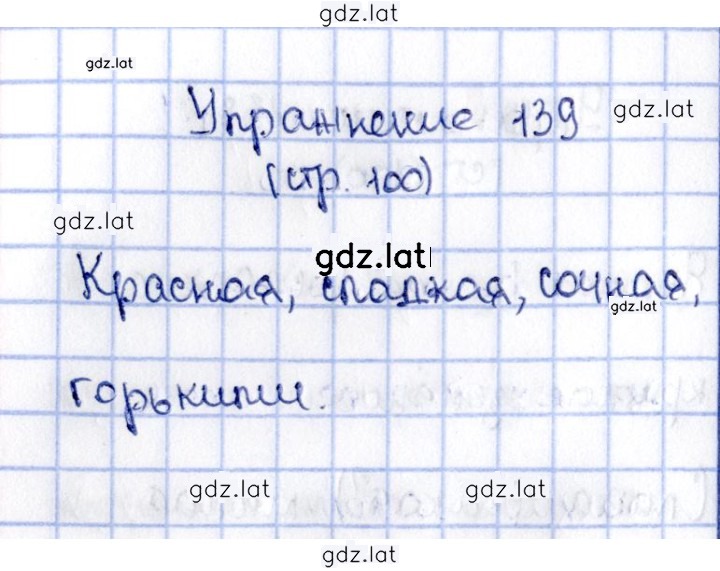 gdz.lat
gdz.lat
Упражнение 139
gdz.lat
(стр. 100)
gdz.lat
gdz.lat
Красная, сладкая, сочная,
gdz.lat
горькими.
gdz.lat gdz.lat
gdz.lat